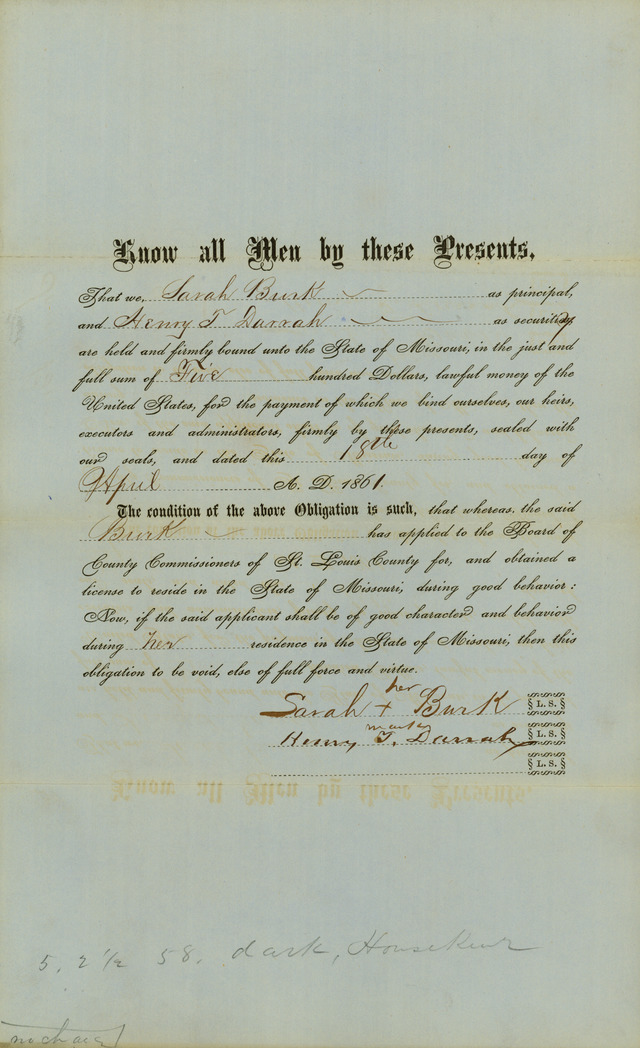 Know all Men by these Presents,
That we, Sarah Burk as principal,
and Henry T Darrah as security
are held and firmly bound unto the State of Missouri, in the just and
full sum of Five hundred Dollars, lawful money of the
United States, for the payment of which we bind ourselves, our heirs,
executors and administrators, firmly by these presents, sealed with
our seals, and dated this 18th day of
April A. D. 1861.
The condition of the above Obligation is such, that whereas, the said
Burk has applied to the Board of
County Commissioners of St. Louis County for, and obtained a
license to reside in the State of Missouri, during good behavior:
Now, if the said applicant shall be of good character and behavior
during her residence in the State of Missouri, then this
obligation to be void, else of full force and virtue.
her
Sarah + Burk § L. S. §
mark
Henry T. Darrah § L. S. §
§ L. S. §
5. 2 1/2 58. dark,
no charge